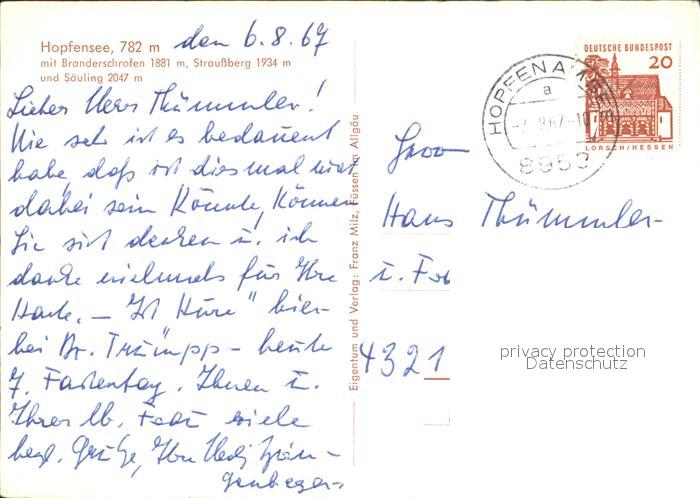 Hopfensee, 782 m
mit Branderschrofen 1881 m, Straußberg 1934 m
und Säuling 2047 m
den 6.8.67
Lieber Herr Thümmler!
Wie sehr ist es bedauert
habe, daß ich diesmal nicht
dabei sein könnte, können
Sie sich denken u. ich
danke vielmals für Ihre
Karte. – Ist Kure" hier-
bei Dr. Trümpp – heute
7. Fastentag. Ihnen u.
Ihrer lb. Frau viele
herzl. Grüße, Ihre
Eigentum und Verlag: Franz Milz, Füssen im Allgäu
HOPFEN AM SEE
a
-7.8.67-10
8959
DEUTSCHE BUNDESPOST
20
LORSCH/HESSEN
Herrn
Hans Thümmler
u. Frau
4321
privacy protection
Datenschutz